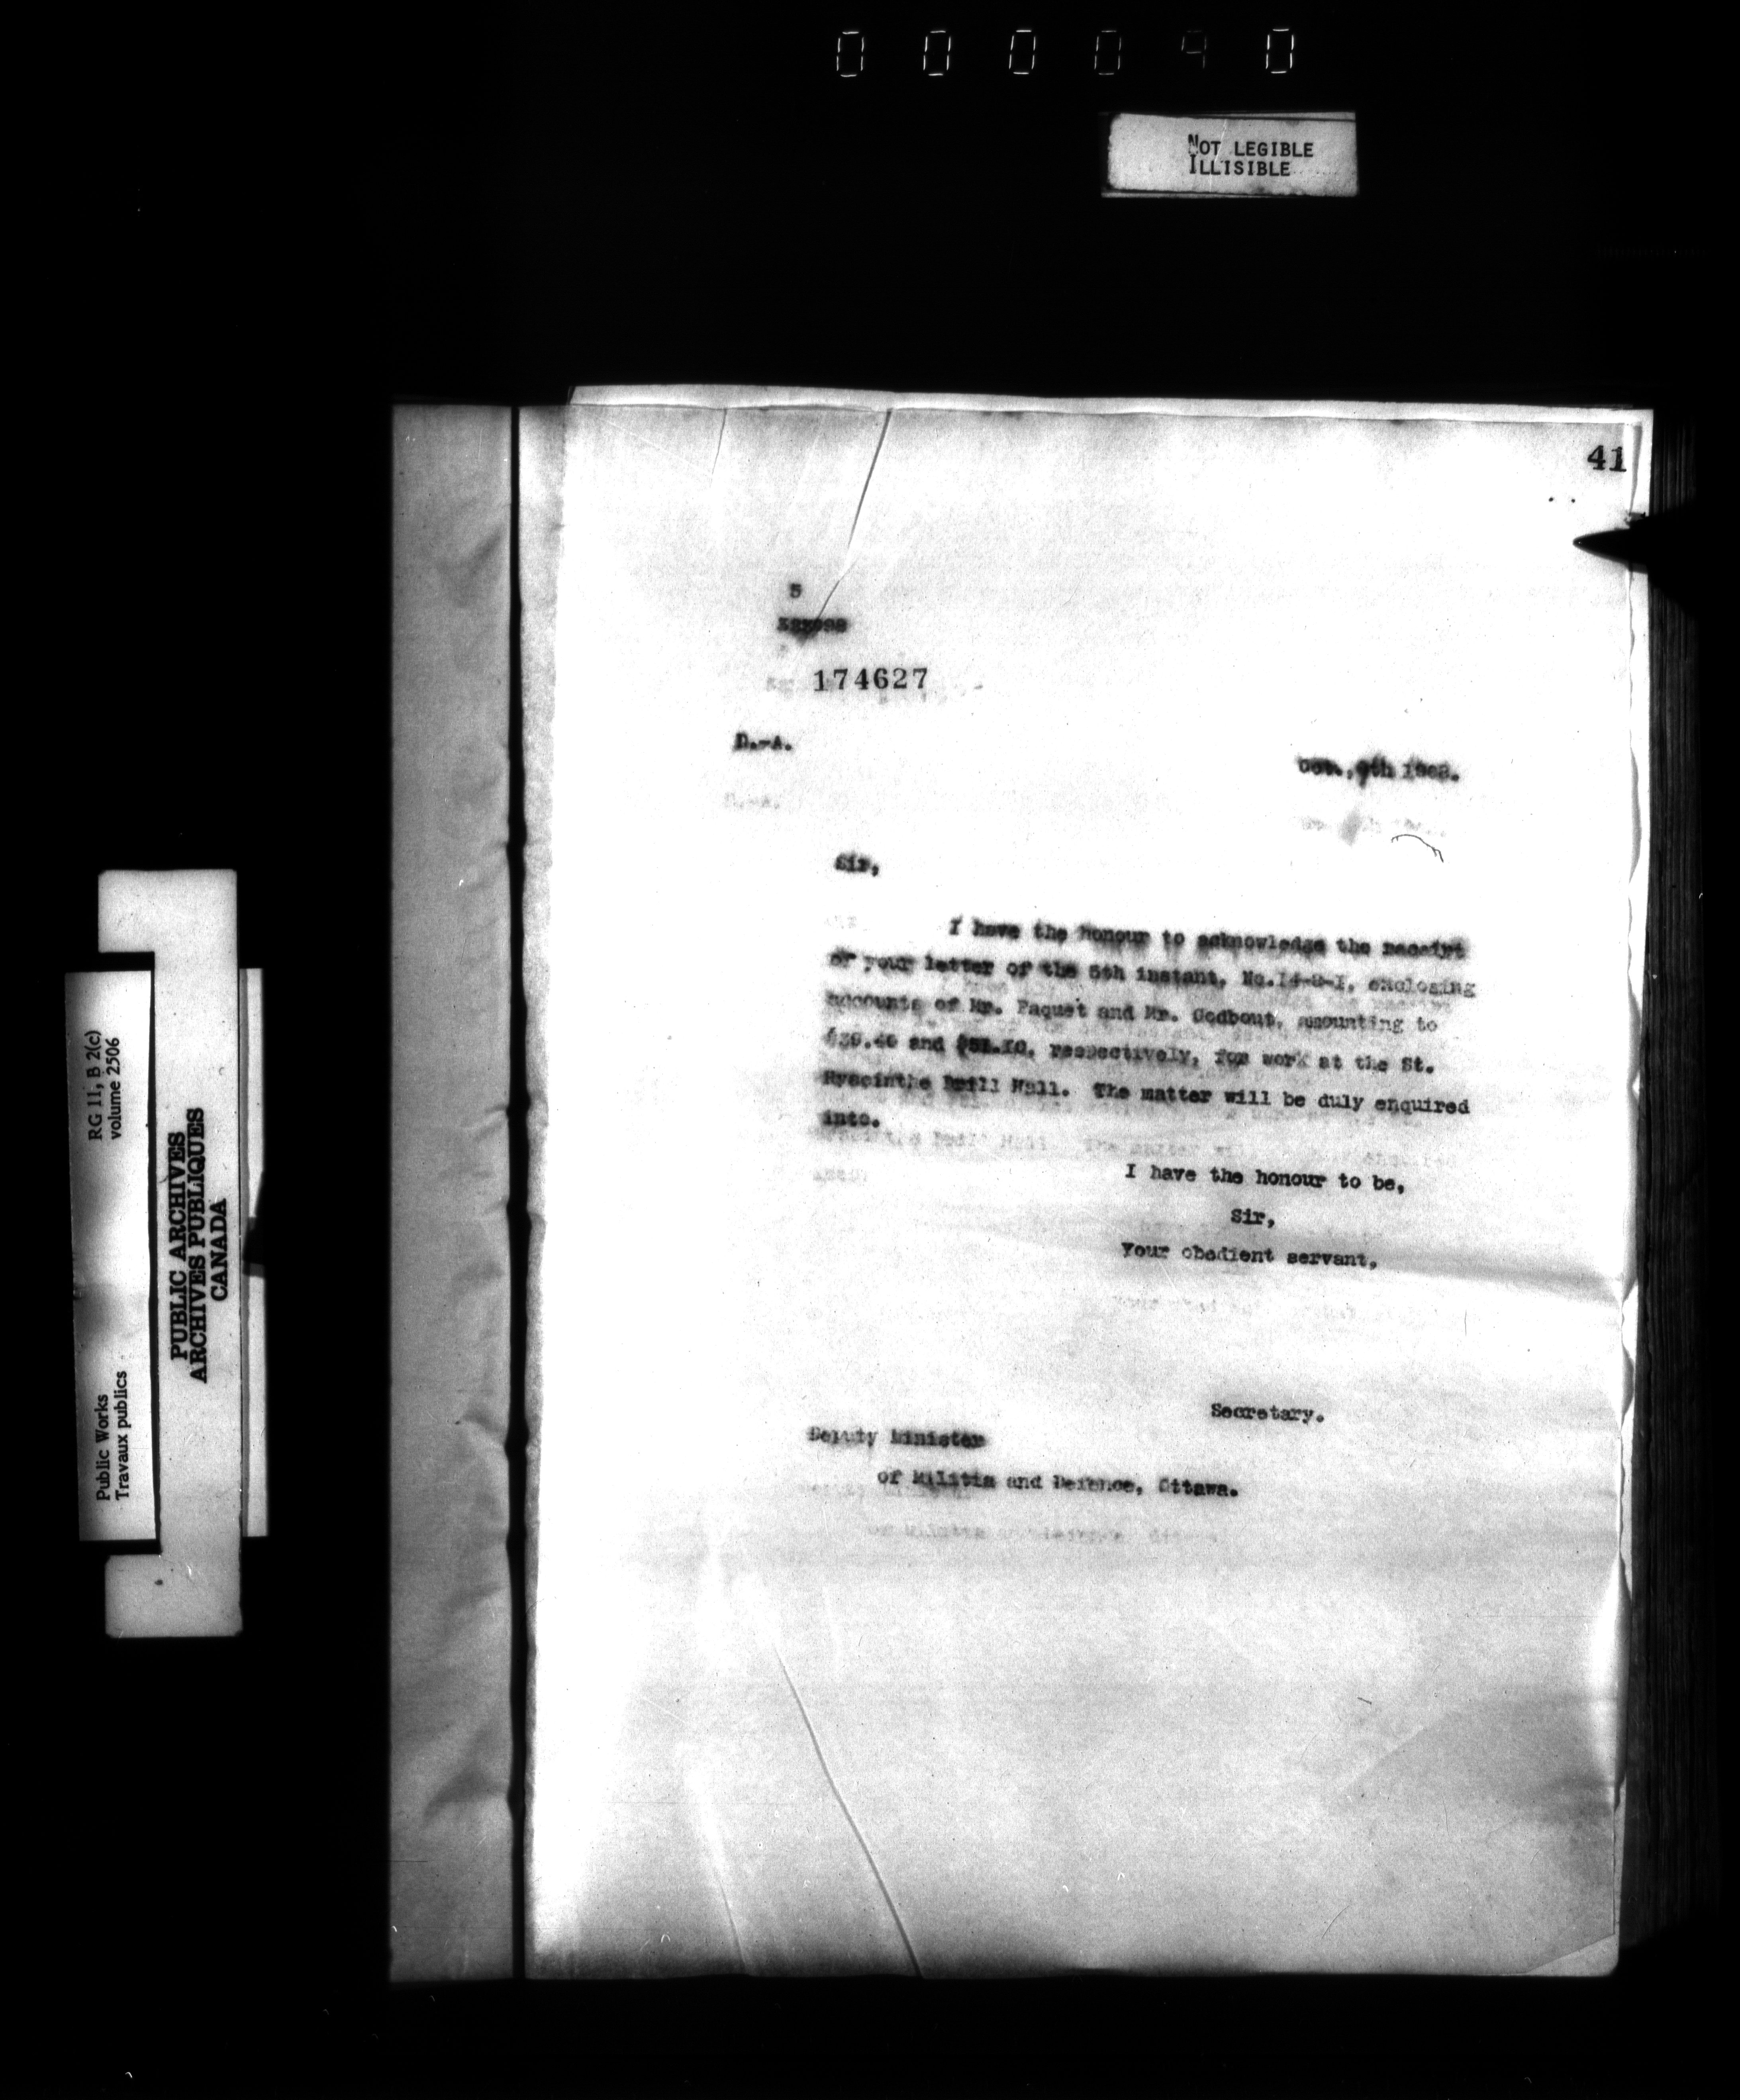 000040
NOT LEGIBLE
ILLISIBLE
41
5
174627
D.-A.
Oct., 9th
Sir,
I have the honour to acknowledge the receipt
of your letter of the 5th instant, No. enclosing
accounts of Mr. Paquet and Mr. Godbout, amounting to
and respectively, for work at the St.
Hyacinthe Drill Hall. The matter will be duly enquired
into.
I have the honour to be,
Sir,
Your obedient servant,
Secretary.
Deputy Minister
of Militia and Defence, Ottawa.
RG 11, B 2(c)
volume 2506
Public Works
Travaux publics
PUBLIC ARCHIVES
ARCHIVES PUBLIQUES
CANADA